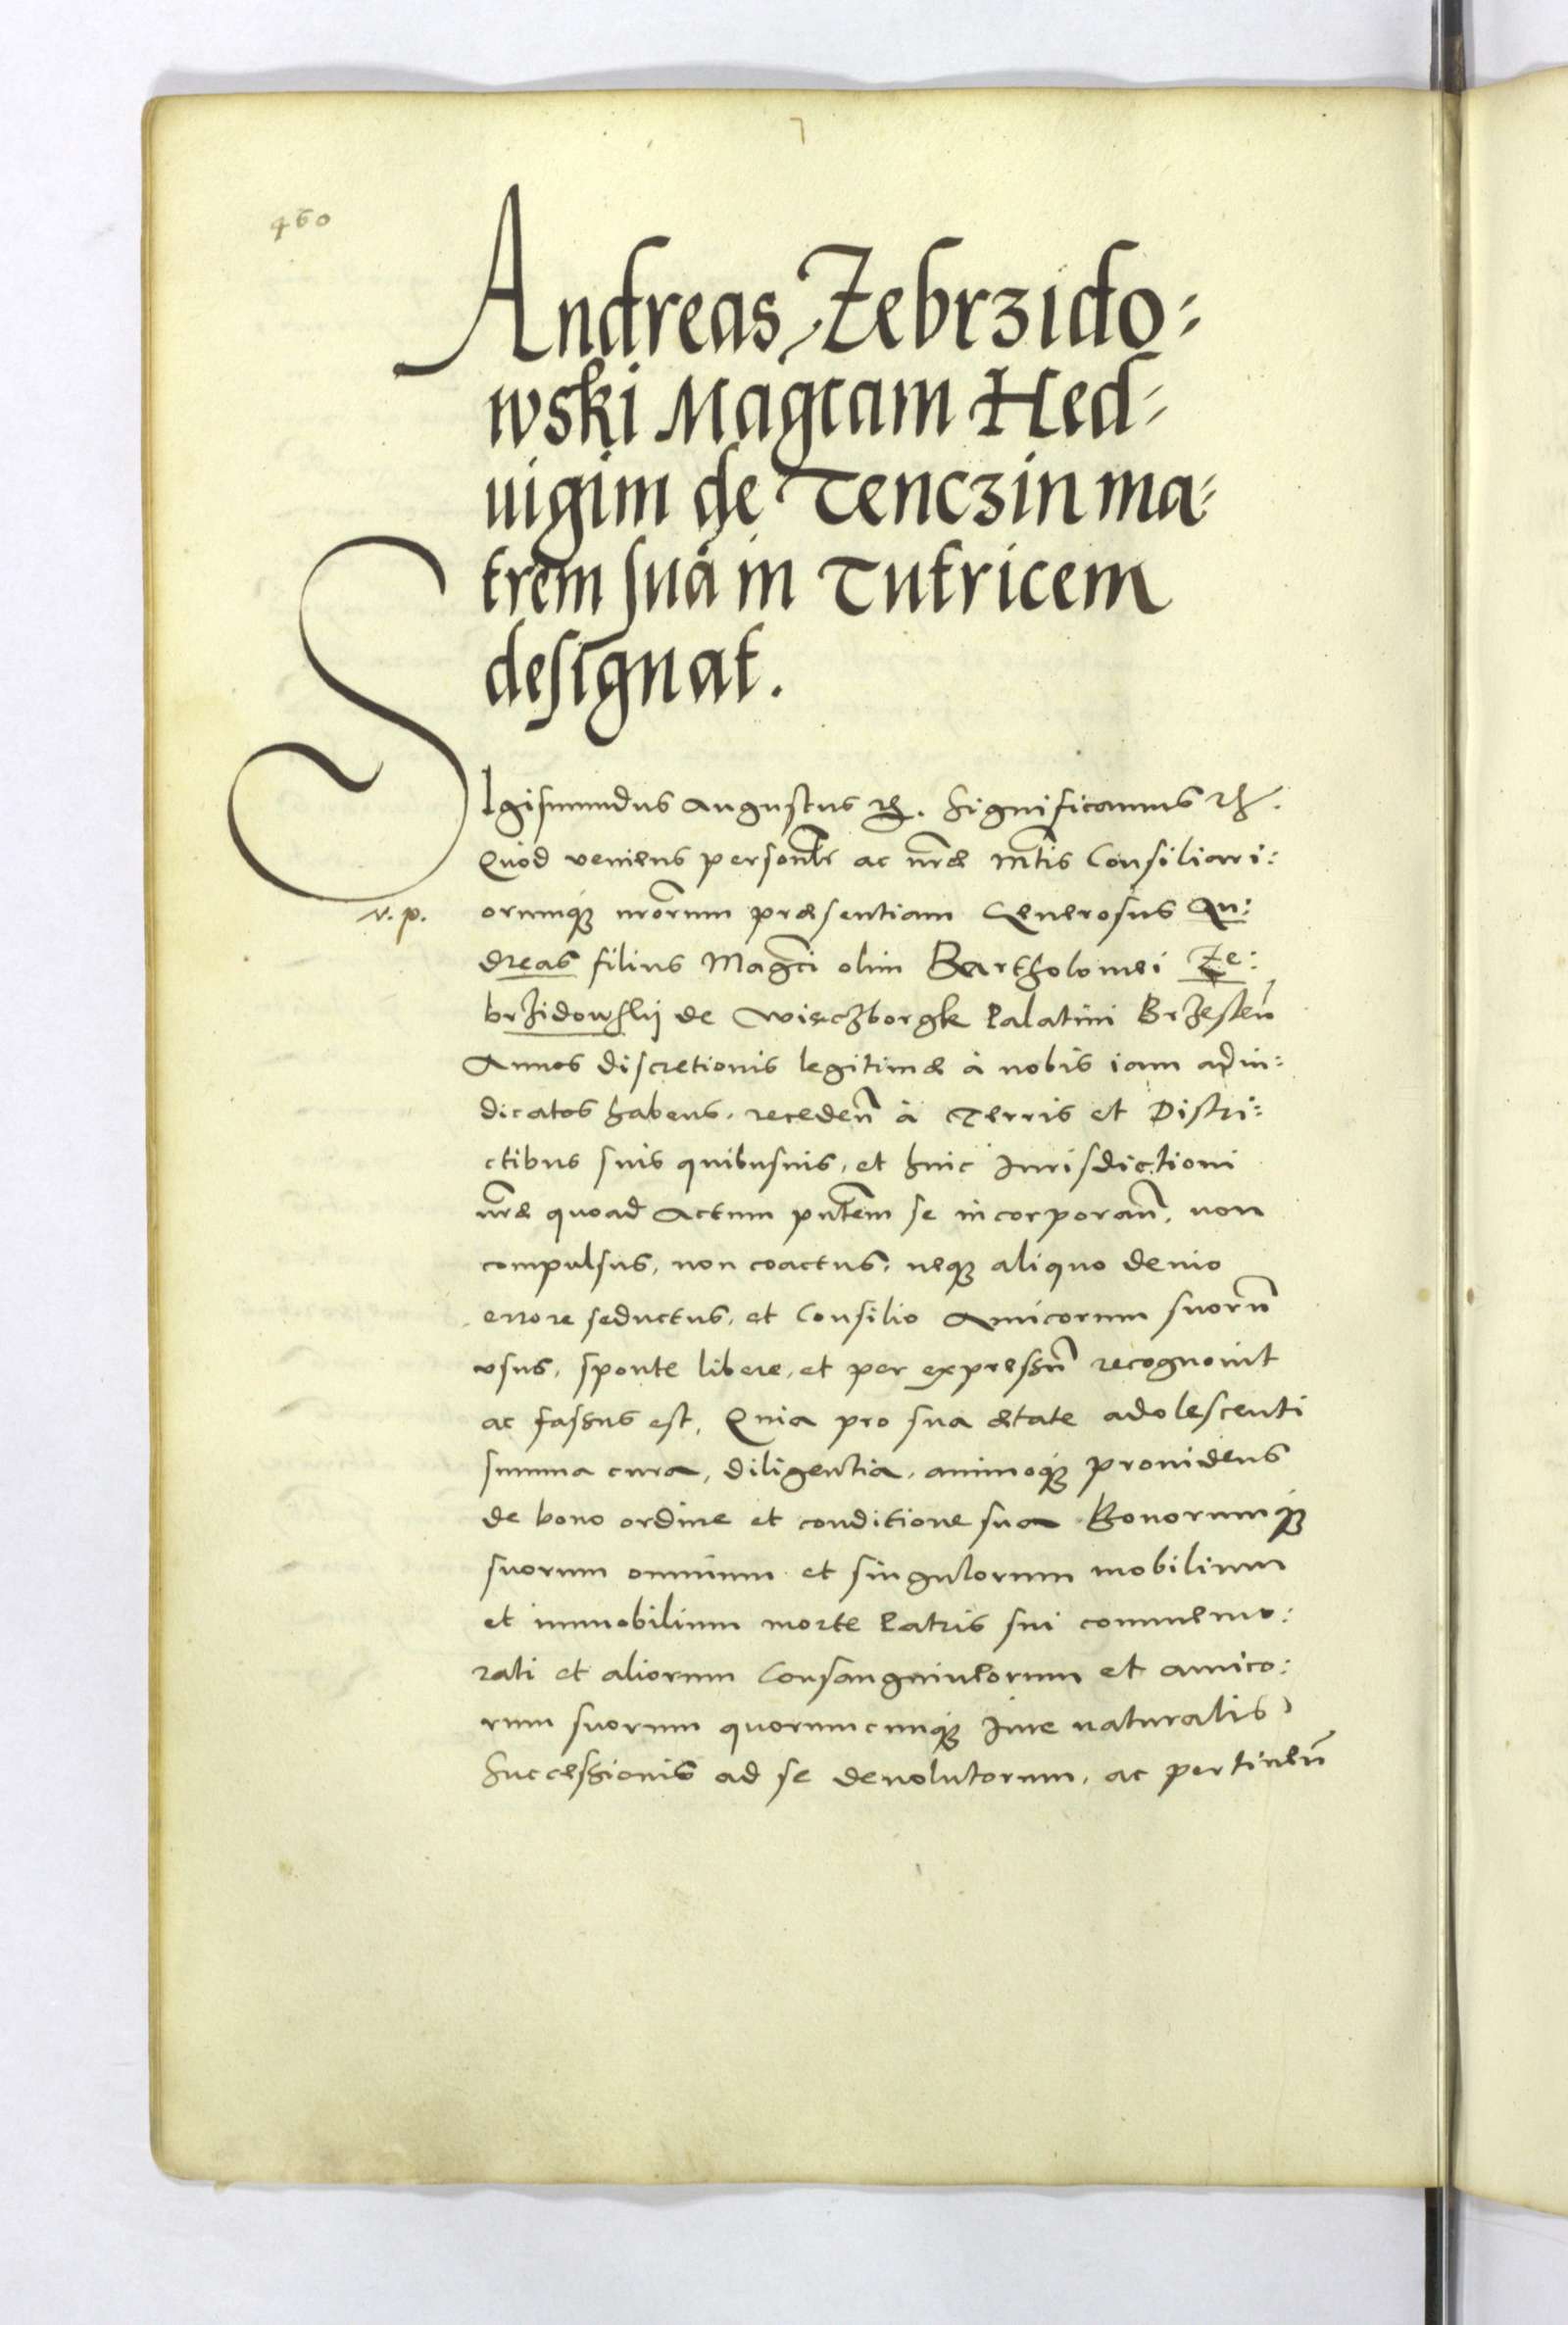 460
Andreas Zebrzido:
wski Magcam Hed:
uigim de Tenczin ma:
trem suā in Tutricem
designat.
SIgismundus Augustus &. Significamus &.
Quod veniens personłr ac nr̃æ Mtĩs Consiliari:
v. p.
orumq; nrõrum præsentiam Generosus An:
dreas filius Magcĩ olim Bartholomei Ze:
brzidowskij de Wieczborgk Palatini Brzesteñ
Annos discretionis legitimæ à nobis iam adiu:
dicatos habens, recedeñ à Terris et Distri:
ctibus suis quibusuis, et huic Iurisdictioni
nr̃æ quoad Actum pñtem se incorporañ, non
compulsus, non coactus, neq; aliquo deuio
errore seductus, et Consilio Amicorum suorũ
vsus, sponte libere, et per expressũ recognouit
ac fassus est, Quia pro sua ætate adolescenti
summa cura, diligentia, animoq; prouidens
de bono ordine et conditione sua Bonorumq;
suorum omnium et singulorum mobilium
et immobilium morte Patris sui commemo:
rati et aliorum Consanguineorum et amico:
rum suorum quorumcunq; iure naturalis
Successionis ad se deuolutorum, ac pertineñ